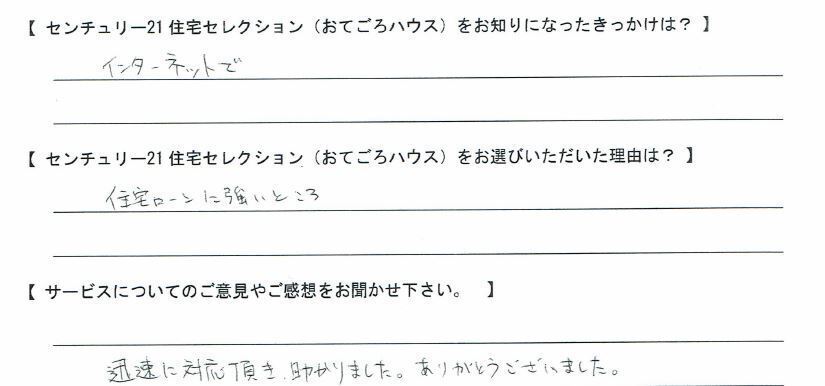 【 センチュリー21 住宅セレクション（おてごろハウス）をお知りになったきっかけは？ 】
インターネットで
【 センチュリー21 住宅セレクション（おてごろハウス）をお選びいただいた理由は？ 】
住宅ローンに強いところ
【 サービスについてのご意見やご感想をお聞かせ下さい。 】
迅速に対応頂き、助かりました。ありがとうございました。